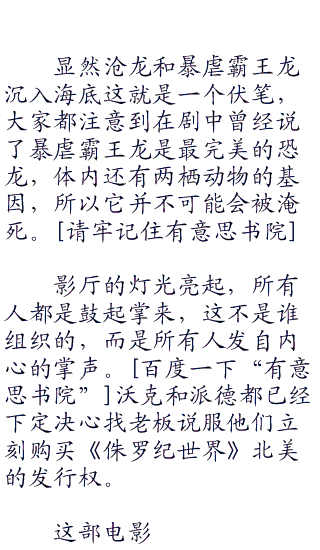 显然沧龙和暴虐霸王龙
沉入海底这就是一个伏笔，
大家都注意到在剧中曾经说
了暴虐霸王龙是最完美的恐
龙，体内还有两栖动物的基
因，所以它并不可能会被淹
死。[请牢记住有意思书院]
影厅的灯光亮起，所有
人都是鼓起掌来，这不是谁
组织的，而是所有人发自内
心的掌声。[百度一下“有意
思书院”]沃克和派德都已经
下定决心找老板说服他们立
刻购买《侏罗纪世界》北美
的发行权。
这部电影